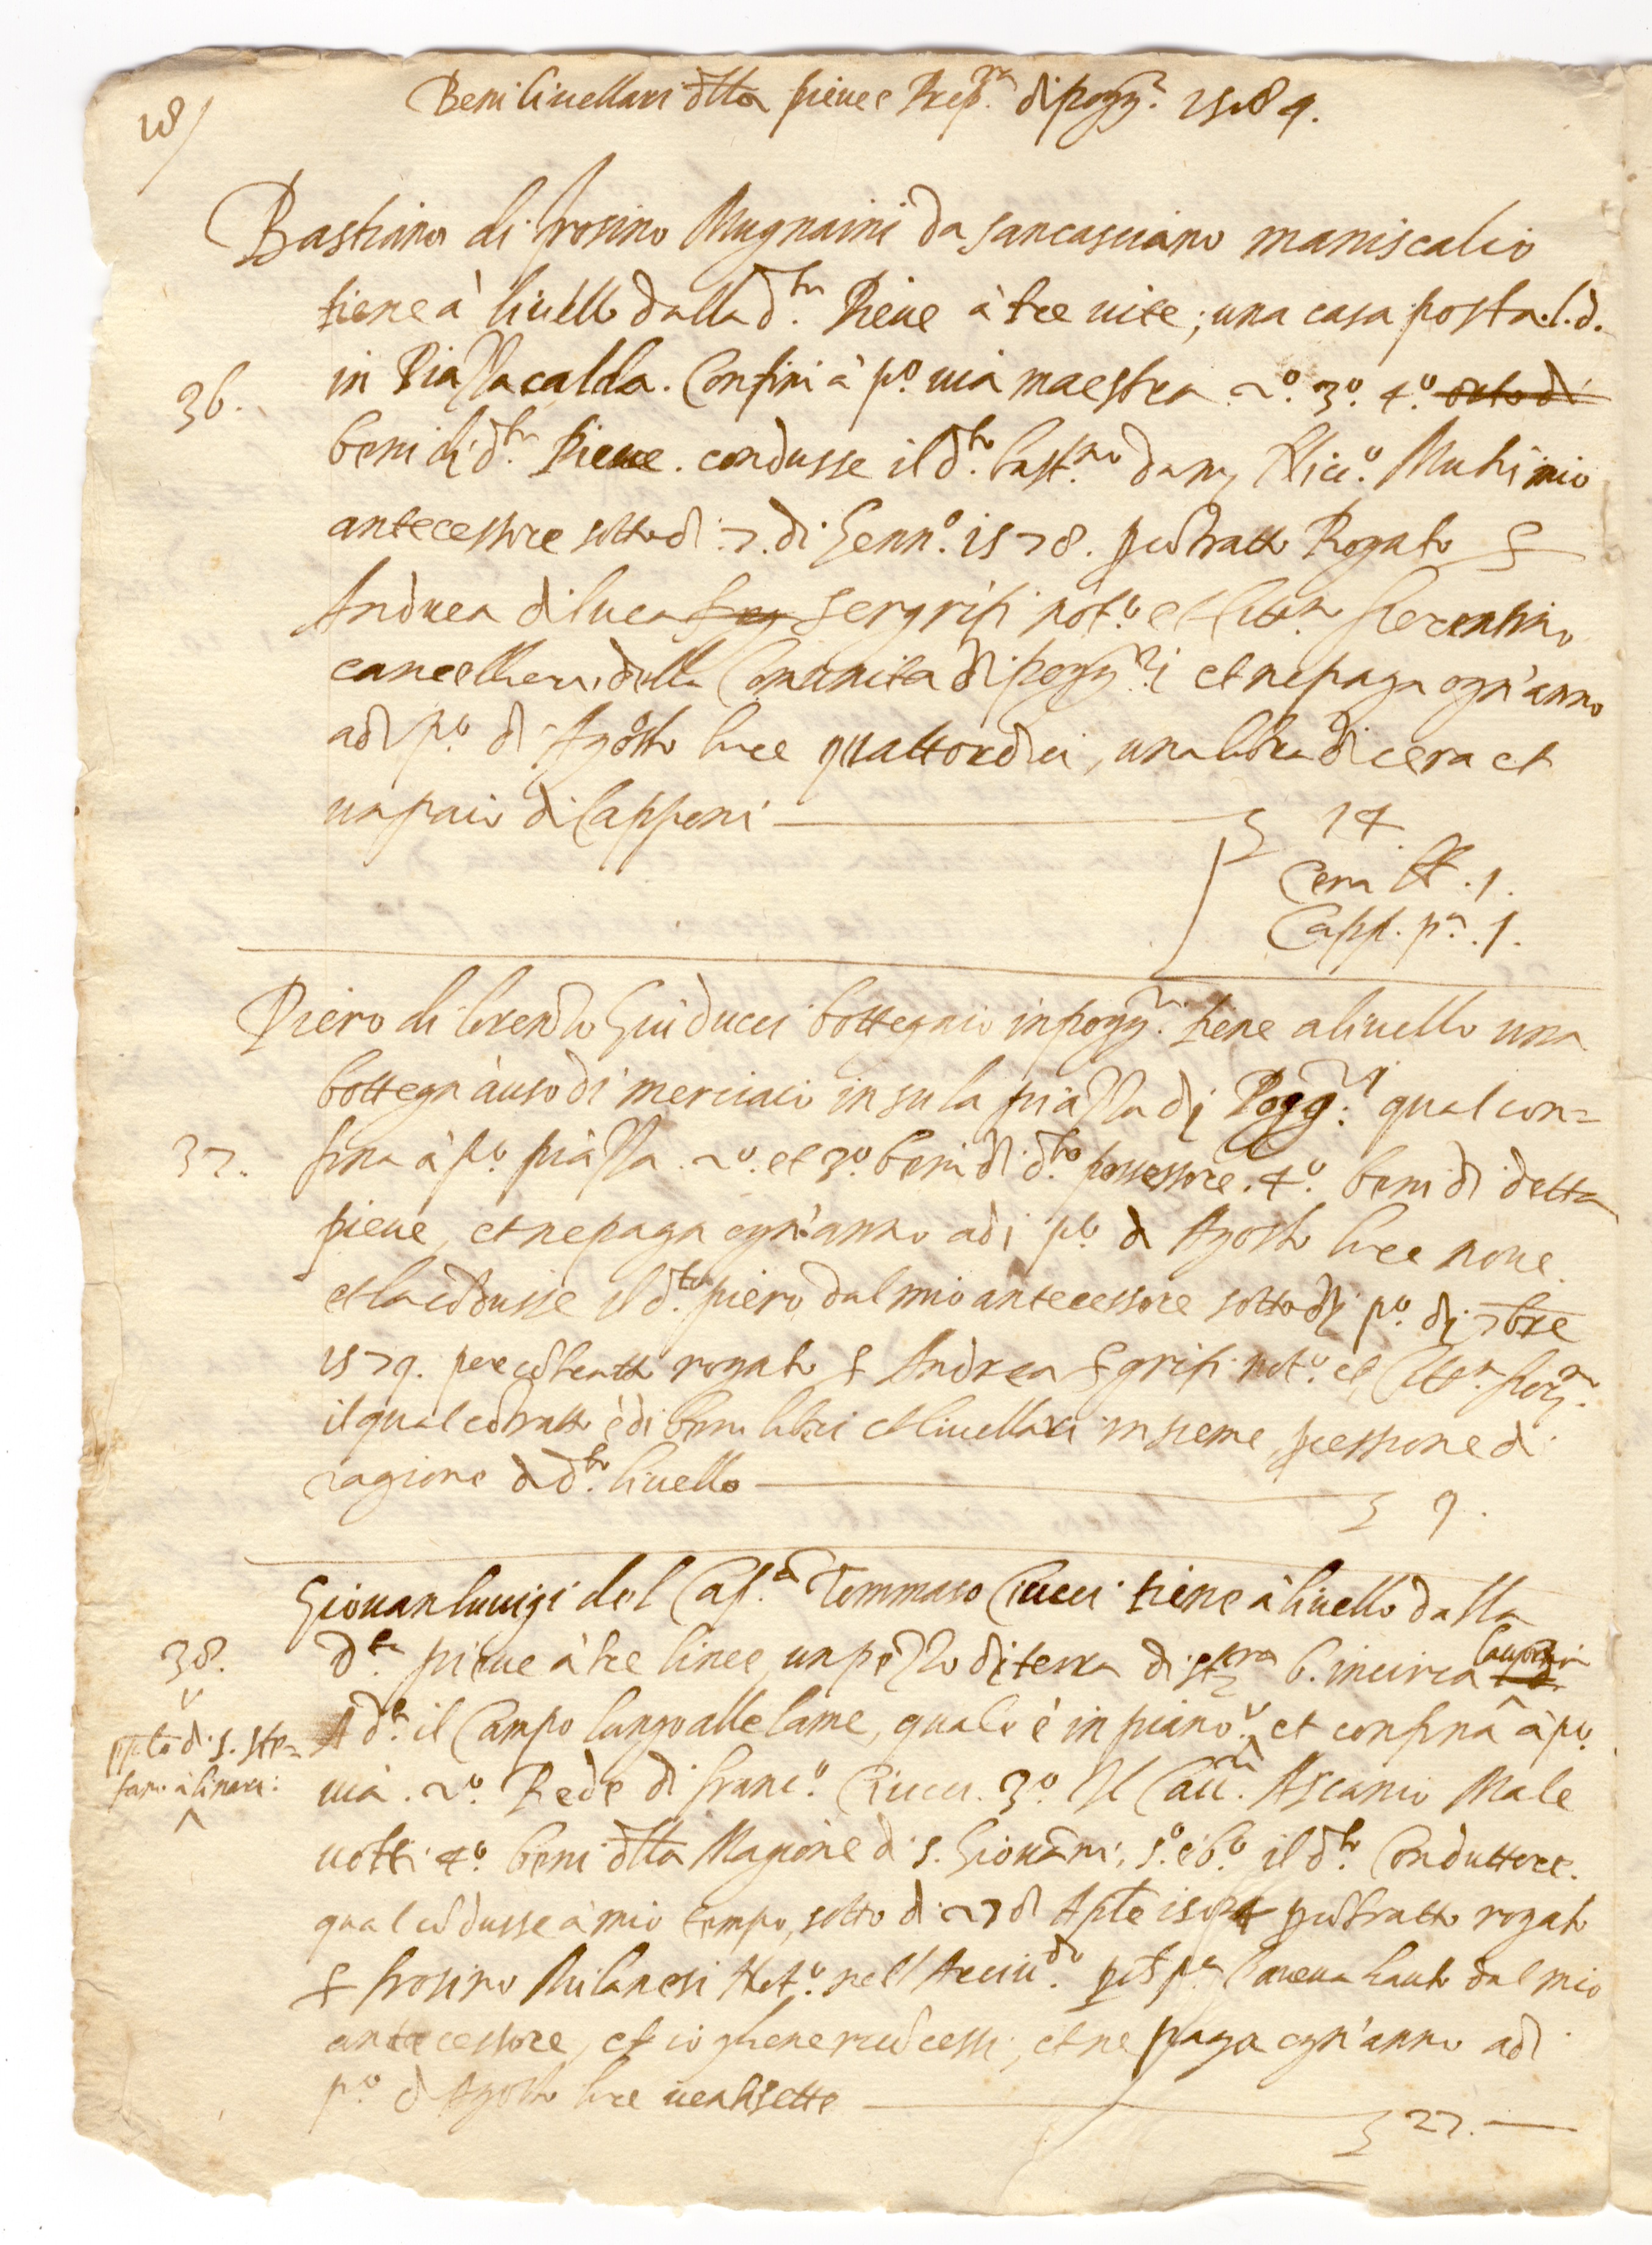 18/
Beni liuellari dlla pieue e Prep.ra di pogg.i 1584.
Bastiano di frosino Mugnaini da sancasciano maniscalco
tiene à liuello dalla d.ta Pieue à tre uite; una casa posta.l.d.
36.
in Piazza calda. Confini à p.o uia maestra 2.o 3.o 4.o orto di
beni di d.ta Pieue. condusse il d.to bast.no da m. Muti mio
antecessore sotto di .7. di Genn.o 1578. p cōtratto Rogato S
Andrea di luca Ser grifi not.o et Citt.no fiorentino
cancelliere della Comunita di pogg.i et ne paga ogn'anno
adi p.o di Agosto lire quattordici, una libra di cera et
un paio di Capponi — 14
Cera lb. 1.
Capp. p.a .1.
Piero di lorenzo Guiducci bottegaio in pogg.i tiene a liuello una
bottega à uso di merciaio in su la piazza di Pogg.i qual con=
37.
fina à p.o piàzza 2.o et 3.o beni di d.to possessore. 4.o beni di detta
pieue, et ne paga ogn'anno adi p.o di Agosto lire noue.
et la cōdusse il d.to piero dal mio antecessore sotto di p.o di 7bre
1579. per cōtratto rogato S Andrea S grifi not.o et Citt.no fior.no
il qual cōtratto è di beni libri et liuellari insieme, p cessione di
ragione di d.to liuello — 9.
Giouanluuigi del Cap.o Tommaso Ciucci tiene à liuello dalla
38.
d.ta pieue à tre linee, un pezzo di terra di st.ra 6. incirca lauor.a
pplo di S. Ste=
fano à linari:
d.o il Campo lungo alle lame, quale è in piano et confina à p.o
uia. 2.o Rede di franc.o Ciucci. 3.o Il Cau.re Ascanio Male
uolti 4.o beni dlla Magione di S. Giouāni, 5.o e 6.o il d.to Conduttore.
qual cōdusse à mio tempo, sotto di 27 di Aple 1584 p cōtratto rogato
S frosino Milanesi Not.o nell'Arciu.do p.a l'aueua hauto dal mio
antecessore, et io gliene ricōcessi, et ne paga ogn'anno adi
p.o di Agosto lire uentisette — 27. —